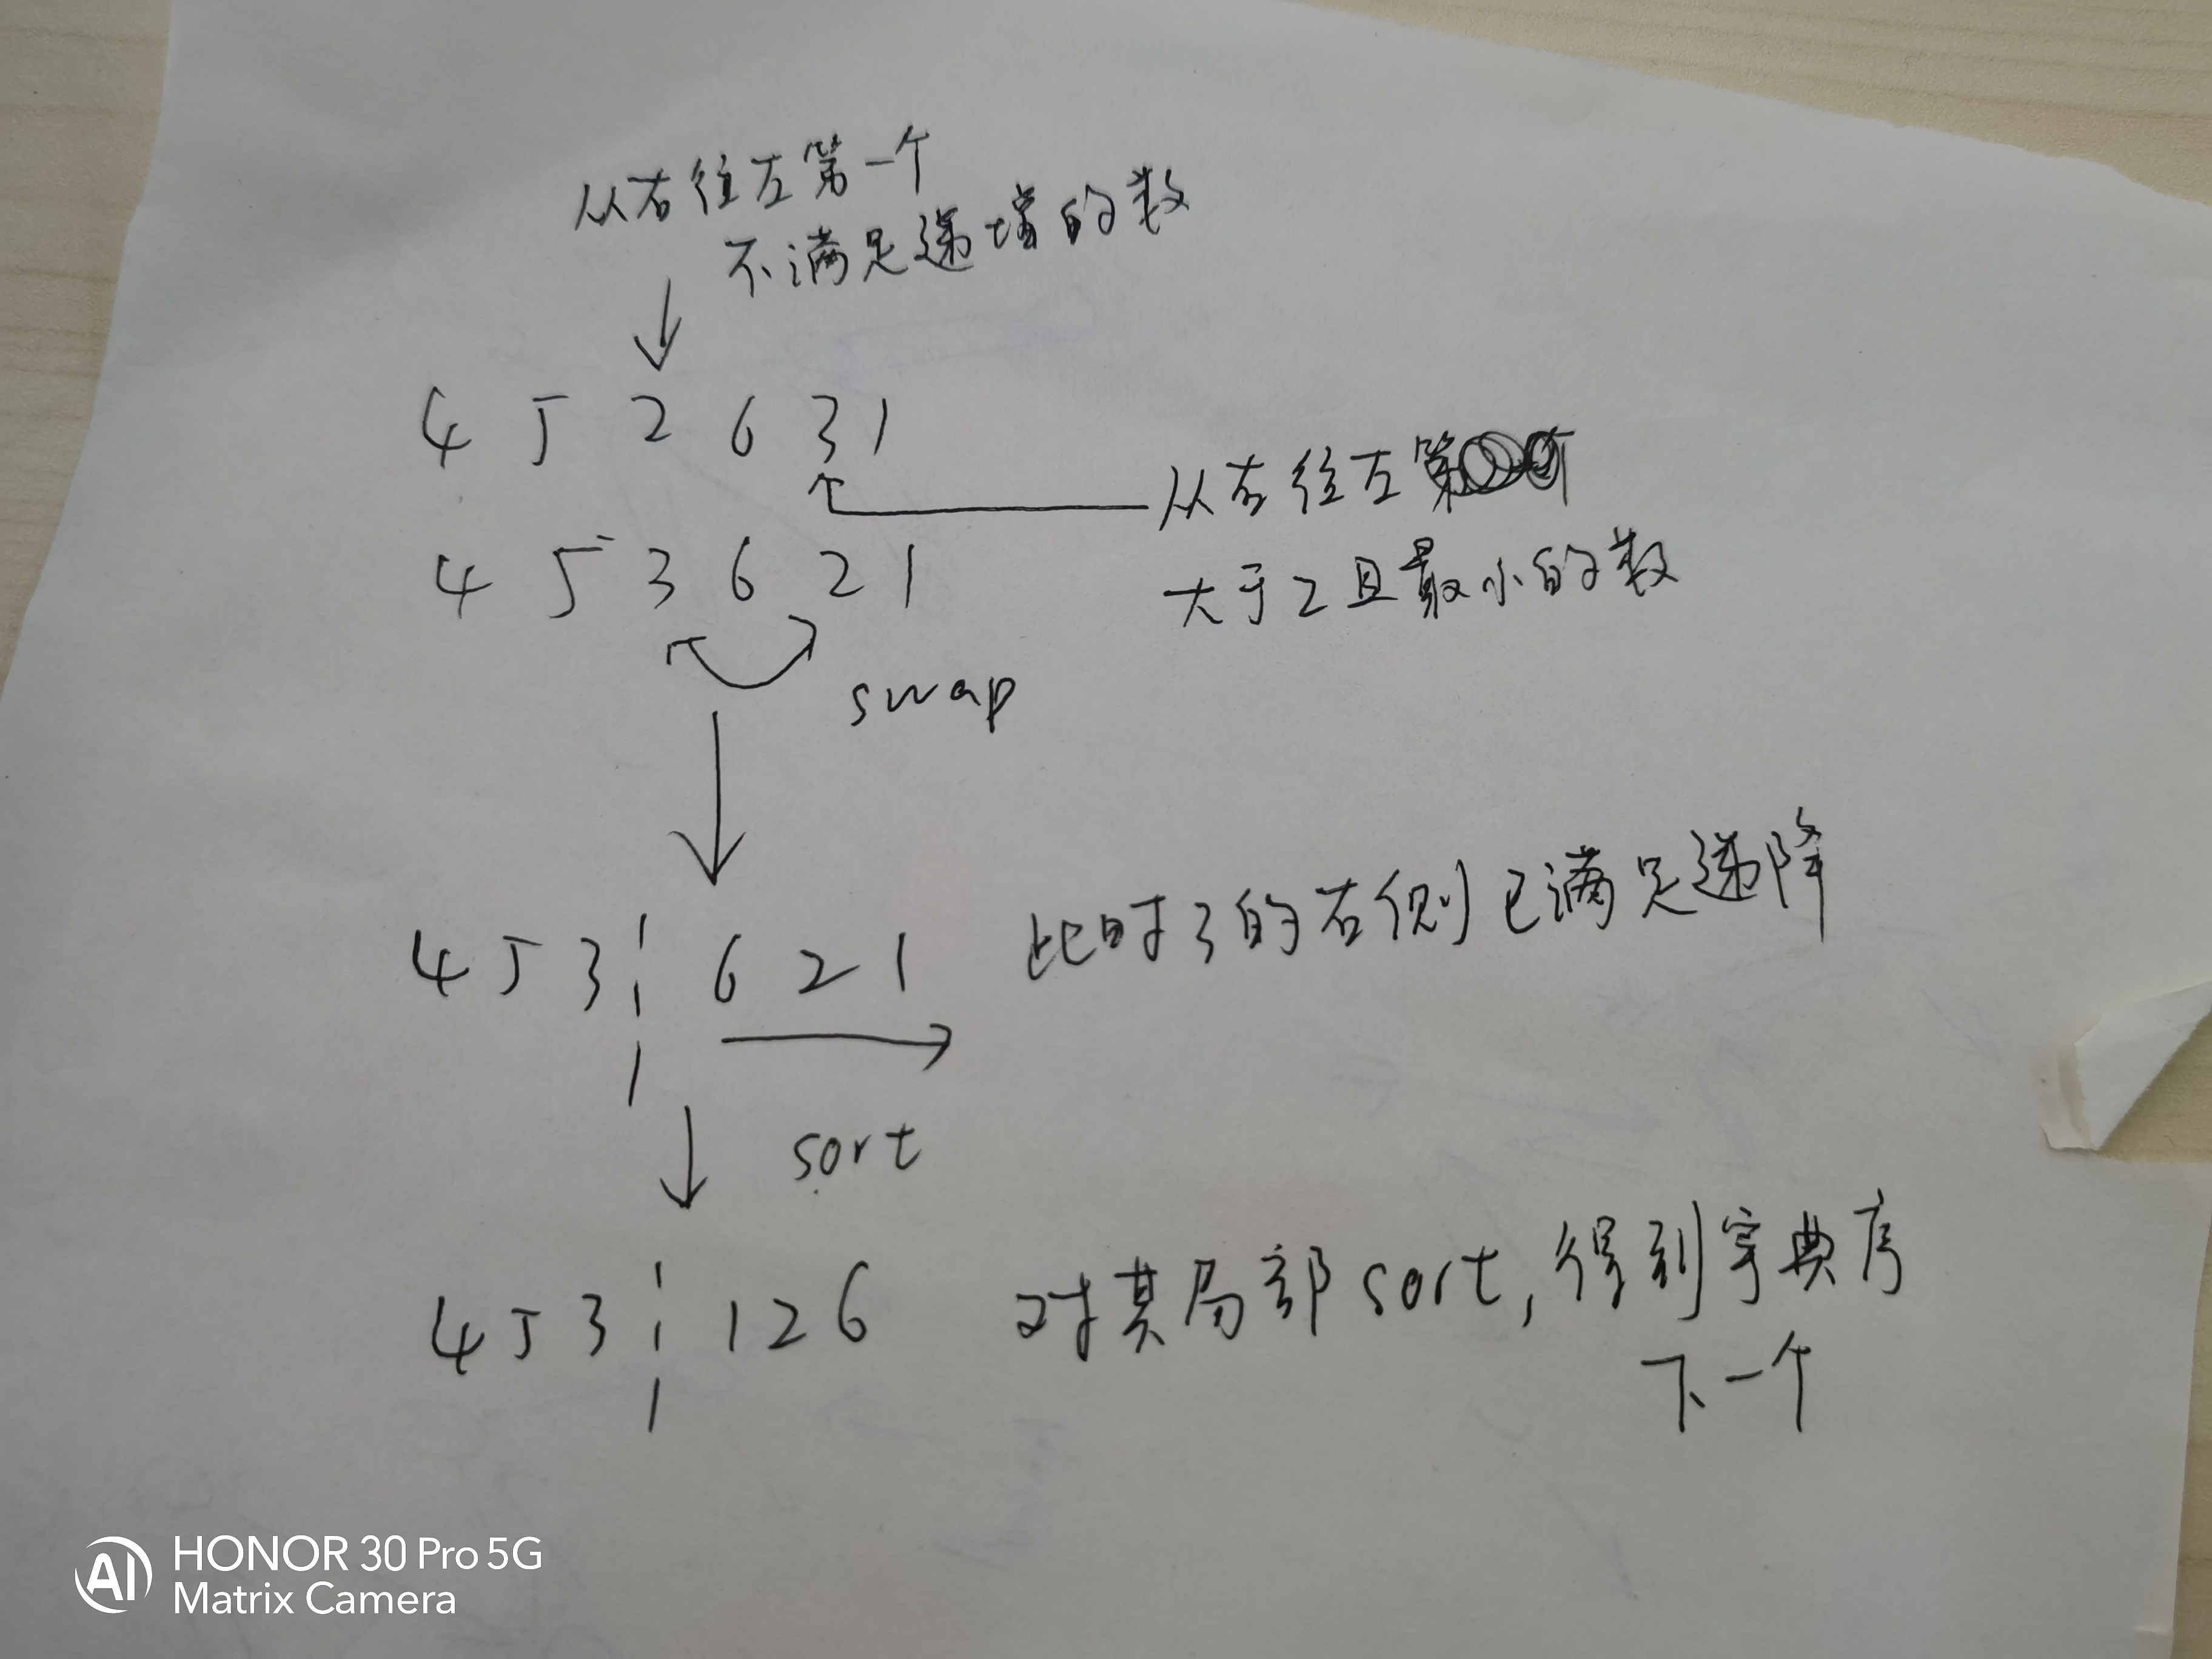 从右往左第一个
不满足递增的数
4 5 2 6 3 1
从右往左第
4 5 3 6 2 1
大于2且最小的数
swap
4 5 3 6 2 1 此时3的右侧已满足递降
sort
4 5 3 1 2 6 对其局部sort,得到字典序
下一个
AI HONOR 30 Pro 5G
Matrix Camera